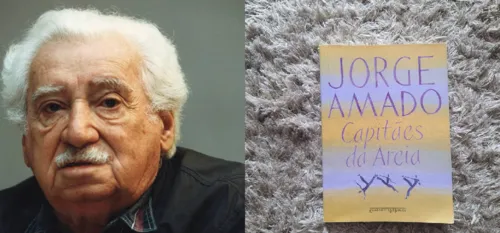 JORGE
AMADO
Capitães
da Areia